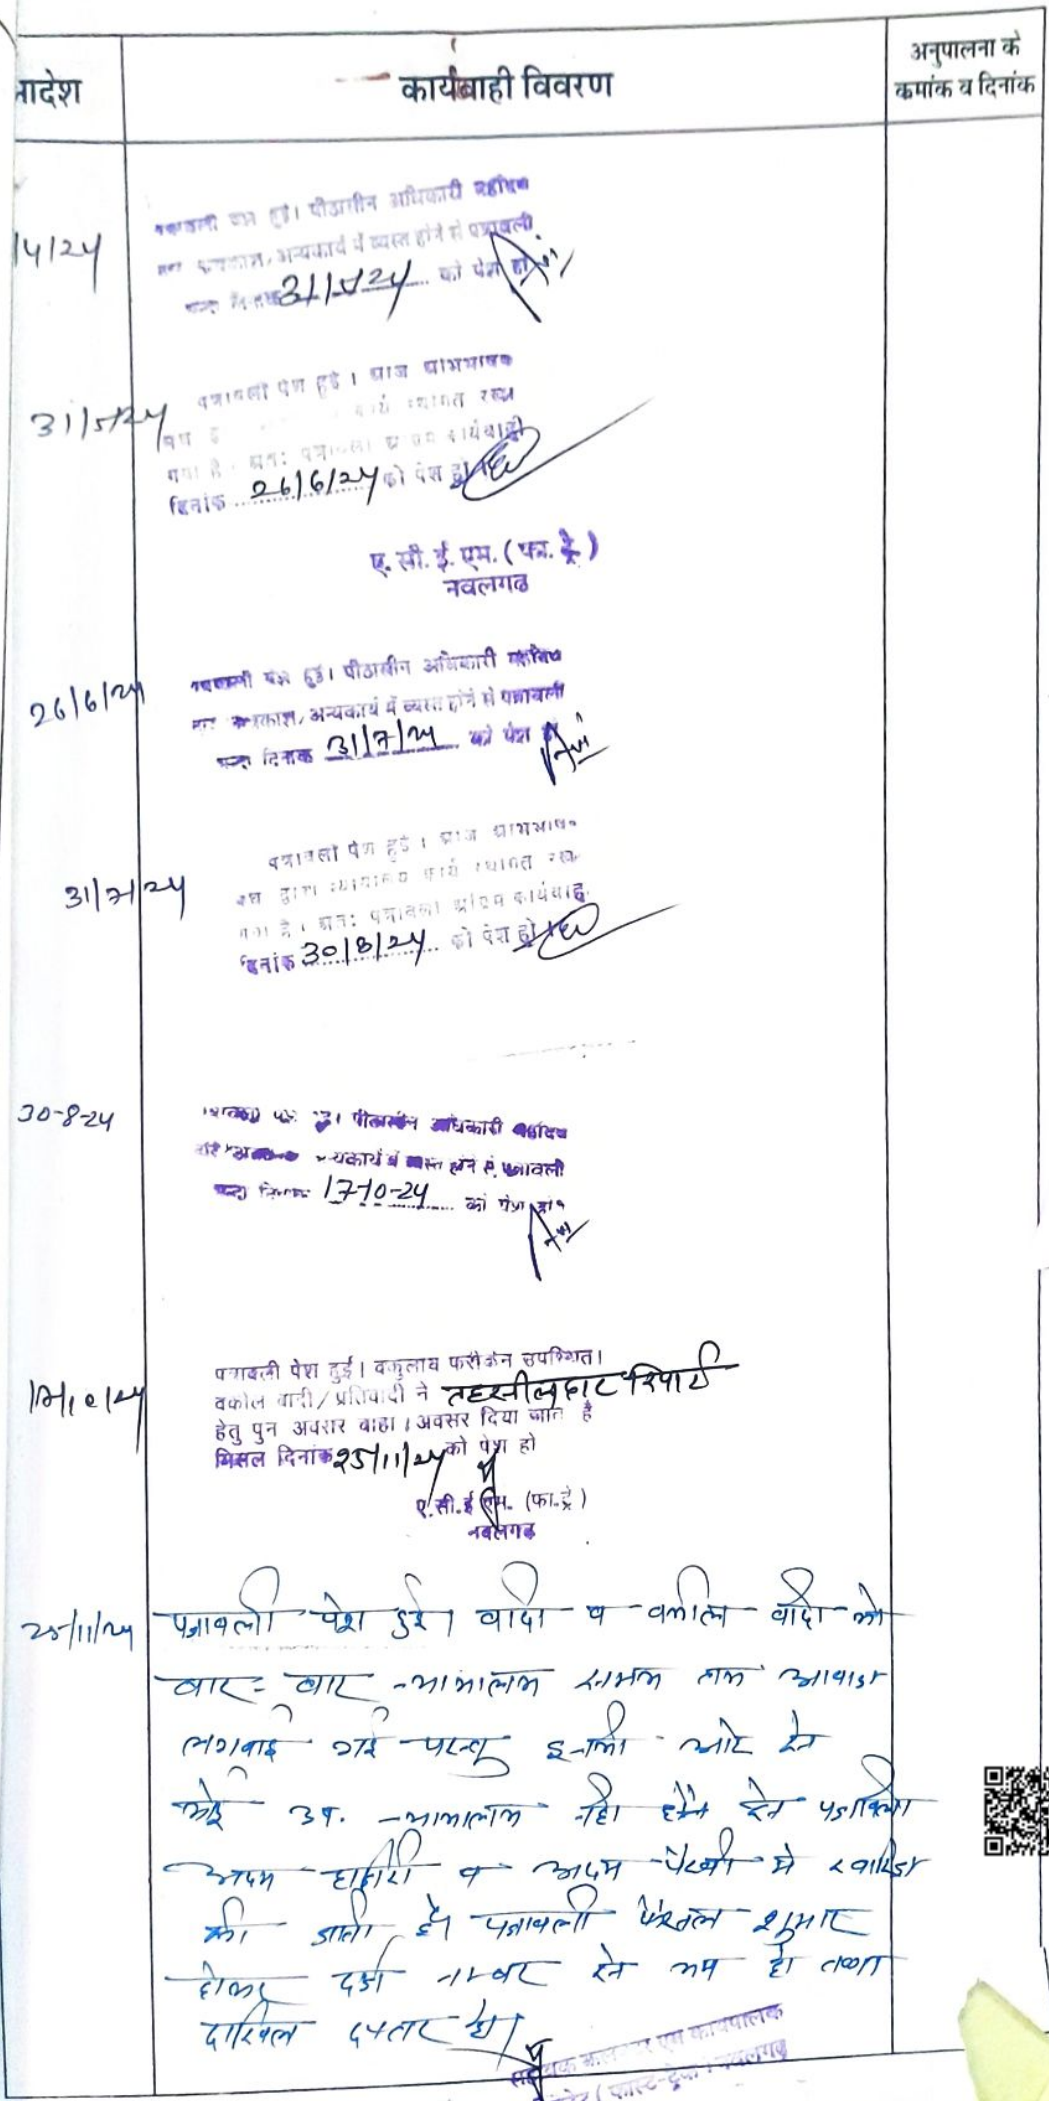 आदेश
कार्यवाही विवरण
अनुपालना के
कमांक व दिनांक
/4/24
हुई। पीठासीन अधिकारी
अन्यकार्य में व्यस्त होने से पत्रावली
31/5/24 को पेश हो
31/5/24
पत्रावली पेश हुई। आज अभिभाषक
कार्य स्थगित रखा
गया है। अतः पत्रावली कार्यवाही
दिनांक 26/6/24 को पेश हो
ए. सी. ई. एम. (फा. ट्रे)
नवलगढ
26/6/24
हुई। पीठासीन अधिकारी
अन्यकार्य में व्यस्त होने से पत्रावली
दिनांक 31/7/24 को पेश
31/7/24
पत्रावली पेश हुई। आज अभिभाषक
द्वारा न्यायालय कार्य स्थगित रखा
गया है। अतः पत्रावली अग्रिम कार्यवाही
दिनांक 30/8/24 को पेश हो
30-8-24
पीठासीन अधिकारी
होने से पत्रावली
17-10-24 को पेश
17/10/24
पत्रावली पेश हुई। वकुलाय फरीकेन उपस्थित।
वकील वादी/प्रतिवादी ने तहसीलदार रिपोर्ट
हेतु पुन अवसर चाहा। अवसर दिया जाता है
मिसल दिनांक 25/11/24 को पेश हो
ए.सी.ई.एम. (फा.ट्रे)
नवलगढ
25/11/24
पत्रावली पेश हुई। वादी व वकील वादी को
बार-बार न्यायालय समय तक आवाज
लगवाई गई परन्तु इनकी ओर से
कोई उप. न्यायालय नहीं होने से पत्रावली
अदम हाजरी व अदम पैरवी में खारिज
की जाती है। पत्रावली फैसल शुमार
होकर दर्ज नम्बर से कम हो तथा
दाखिल दफ्तर हो।
कार्यपालक
(फास्ट-ट्रेक) नवलगढ़